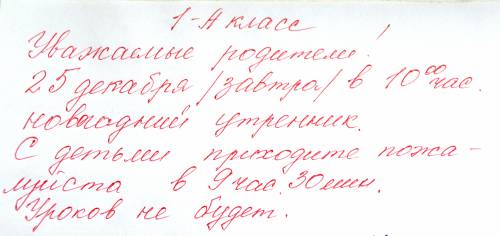 1-А класс
Уважаемые родители!
25 декабря /завтра/ в 10⁰⁰ час.
новогодний утренник.
С детьми приходите пожа-
муйста в 9 час. 30 мин.
Уроков не будет.